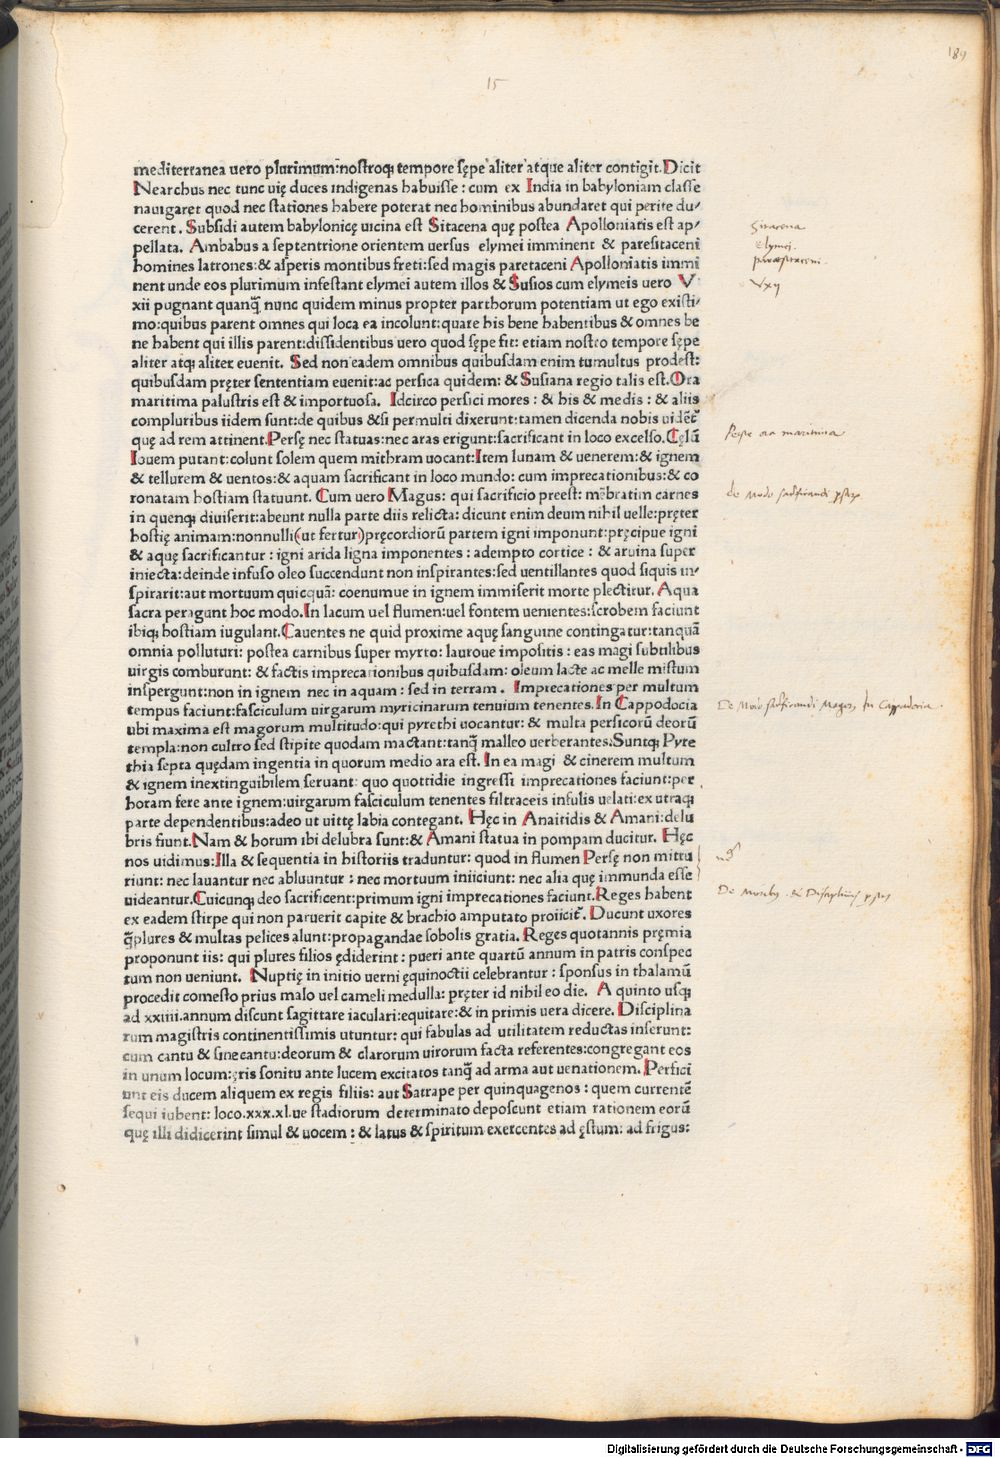 189
15
mediterranea uero plurimum:nostroq; tempore sępe aliter atque aliter contigit.Dicit
Nearchus nec tunc uię duces indigenas habuisse : cum ex India in babyloniam classe
nauigaret quod nec stationes habere poterat nec hominibus abundaret qui perite du/
cerent . Subsidi autem babylonicę uicina est Sitacena quę postea Apolloniatis est ap/
pellata. Ambabus a septentrione orientem uersus elymei imminent & paresitaceni
homines latrones:& asperis montibus freti:sed magis paretaceni Apolloniatis immi
nent unde eos plurimum infestant elymei autem illos & Susios cum elymeis uero V
xii pugnant quanq̃ nunc quidem minus propter parthorum potentiam ut ego existi/
mo:quibus parent omnes qui loca ea incolunt:quare his bene habentibus & omnes be
ne habent qui illis parent:dissidentibus uero quod sępe fit: etiam nostro tempore sępe
aliter atq; aliter euenit. Sed non eadem omnibus quibusdam enim tumultus prodest:
quibusdam pręter sententiam euenit:ac persica quidem: & Susiana regio talis est.Ora
maritima palustris est & importuosa. Idcirco persici mores : & his & medis : & aliis
compluribus iidem sunt:de quibus &si permulti dixerunt:tamen dicenda nobis uidet̃
quę ad rem attinent.Persę nec statuas:nec aras erigunt:sacrificant in loco excelso.Cęlũ
Iouem putant:colunt solem quem mithram uocant:Item lunam & uenerem:& ignem
& tellurem & uentos:& aquam sacrificant in loco mundo: cum imprecationibus:& co
ronatam hostiam statuunt. Cum uero Magus: qui sacrificio preest: mẽbratim carnes
in quenq; diuiserit:abeunt nulla parte diis relicta: dicunt enim deum nihil uelle:pręter
hostię animam:nonnulli(ut fertur)pręcordiorũ partem igni imponunt:pręcipue igni
& aquę sacrificantur : igni arida ligna imponentes : adempto cortice : & aruina super
iniecta:deinde infuso oleo succendunt non inspirantes:sed uentillantes quod siquis in/
spirarit:aut mortuum quicquã: coenumue in ignem immiserit morte plectitur. Aqua
sacra peragunt hoc modo.In lacum uel flumen:uel fontem uenientes:scrobem faciunt
ibiq; hostiam iugulant.Cauentes ne quid proxime aquę sanguine contingatur:tanquã
omnia polluturi: postea carnibus super myrto: lauroue impositis : eas magi subtilibus
uirgis comburunt: & factis imprecationibus quibusdam: oleum lacte ac melle mistum
inspergunt:non in ignem nec in aquam : sed in terram . Imprecationes per multum
tempus faciunt:fasciculum uirgarum myricinarum tenuium tenentes.In Cappodocia
ubi maxima est magorum multitudo:qui pyrethi uocantur: & multa persicorũ deorũ
templa:non cultro sed stipite quodam mactant:tanq̃ malleo uerberantes.Suntq; Pyre
thia septa quędam ingentia in quorum medio ara est. In ea magi & cinerem multum
& ignem inextinguibilem seruant: quo quottidie ingressi imprecationes faciunt:per
horam fere ante ignem:uirgarum fasciculum tenentes filtraceis infulis uelati:ex utraq;
parte dependentibus:adeo ut uittę labia contegant. Hęc in Anaitidis & Amani:delu
bris fiunt.Nam & horum ibi delubra sunt:& Amani statua in pompam ducitur. Hęc
nos uidimus:Illa & sequentia in historiis traduntur: quod in flumen Persę non mittu
riunt: nec lauantur nec abluuntur : nec mortuum iniiciunt: nec alia quę immunda esse
uideantur.Cuicunq; deo sacrificent:primum igni imprecationes faciunt.Reges habent
ex eadem stirpe qui non paruerit capite & brachio amputato proiicit̃. Ducunt uxores
q̃plures & multas pelices alunt:propagandae sobolis gratia. Reges quotannis pręmia
proponunt iis: qui plures filios ędiderint : pueri ante quartũ annum in patris conspec
tum non ueniunt. Nuptię in initio uerni ęquinoctii celebrantur : sponsus in thalamũ
procedit comesto prius malo uel cameli medulla: pręter id nihil eo die. A quinto usq;
ad xxiiii.annum discunt sagittare iaculari:equitare:& in primis uera dicere. Disciplina
rum magistris continentissimis utuntur: qui fabulas ad utilitatem reductas inserunt:
cum cantu & sine cantu:deorum & clarorum uirorum facta referentes:congregant eos
in unum locum:ęris sonitu ante lucem excitatos tanq̃ ad arma aut uenationem. Perfici
unt eis ducem aliquem ex regis filiis: aut Satrape per quinquagenos : quem currentẽ
sequi iubent: loco.xxx.xl.ue stadiorum determinato deposcunt etiam rationem eorũ
quę illi didicerint simul & uocem : & latus & spiritum exercentes ad ęstum: ad frigus:
Sitacena
elymei.
Vxij
Perse ora maritima
de Modo sacrificandi
De Modo sacrificandi Magor. In Cappadocia.
De Moribus & Disciplinis
Digitalisierung gefördert durch die Deutsche Forschungsgemeinschaft - DFG